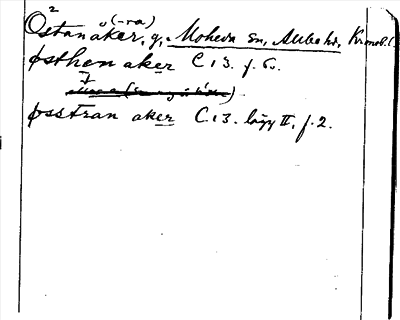 Östanåker, g, Moheda sn, Allbo hd, Kronob. l.
østhen aker C 13. f. 6.
østran aker C. 13. lägg II, f. 2.